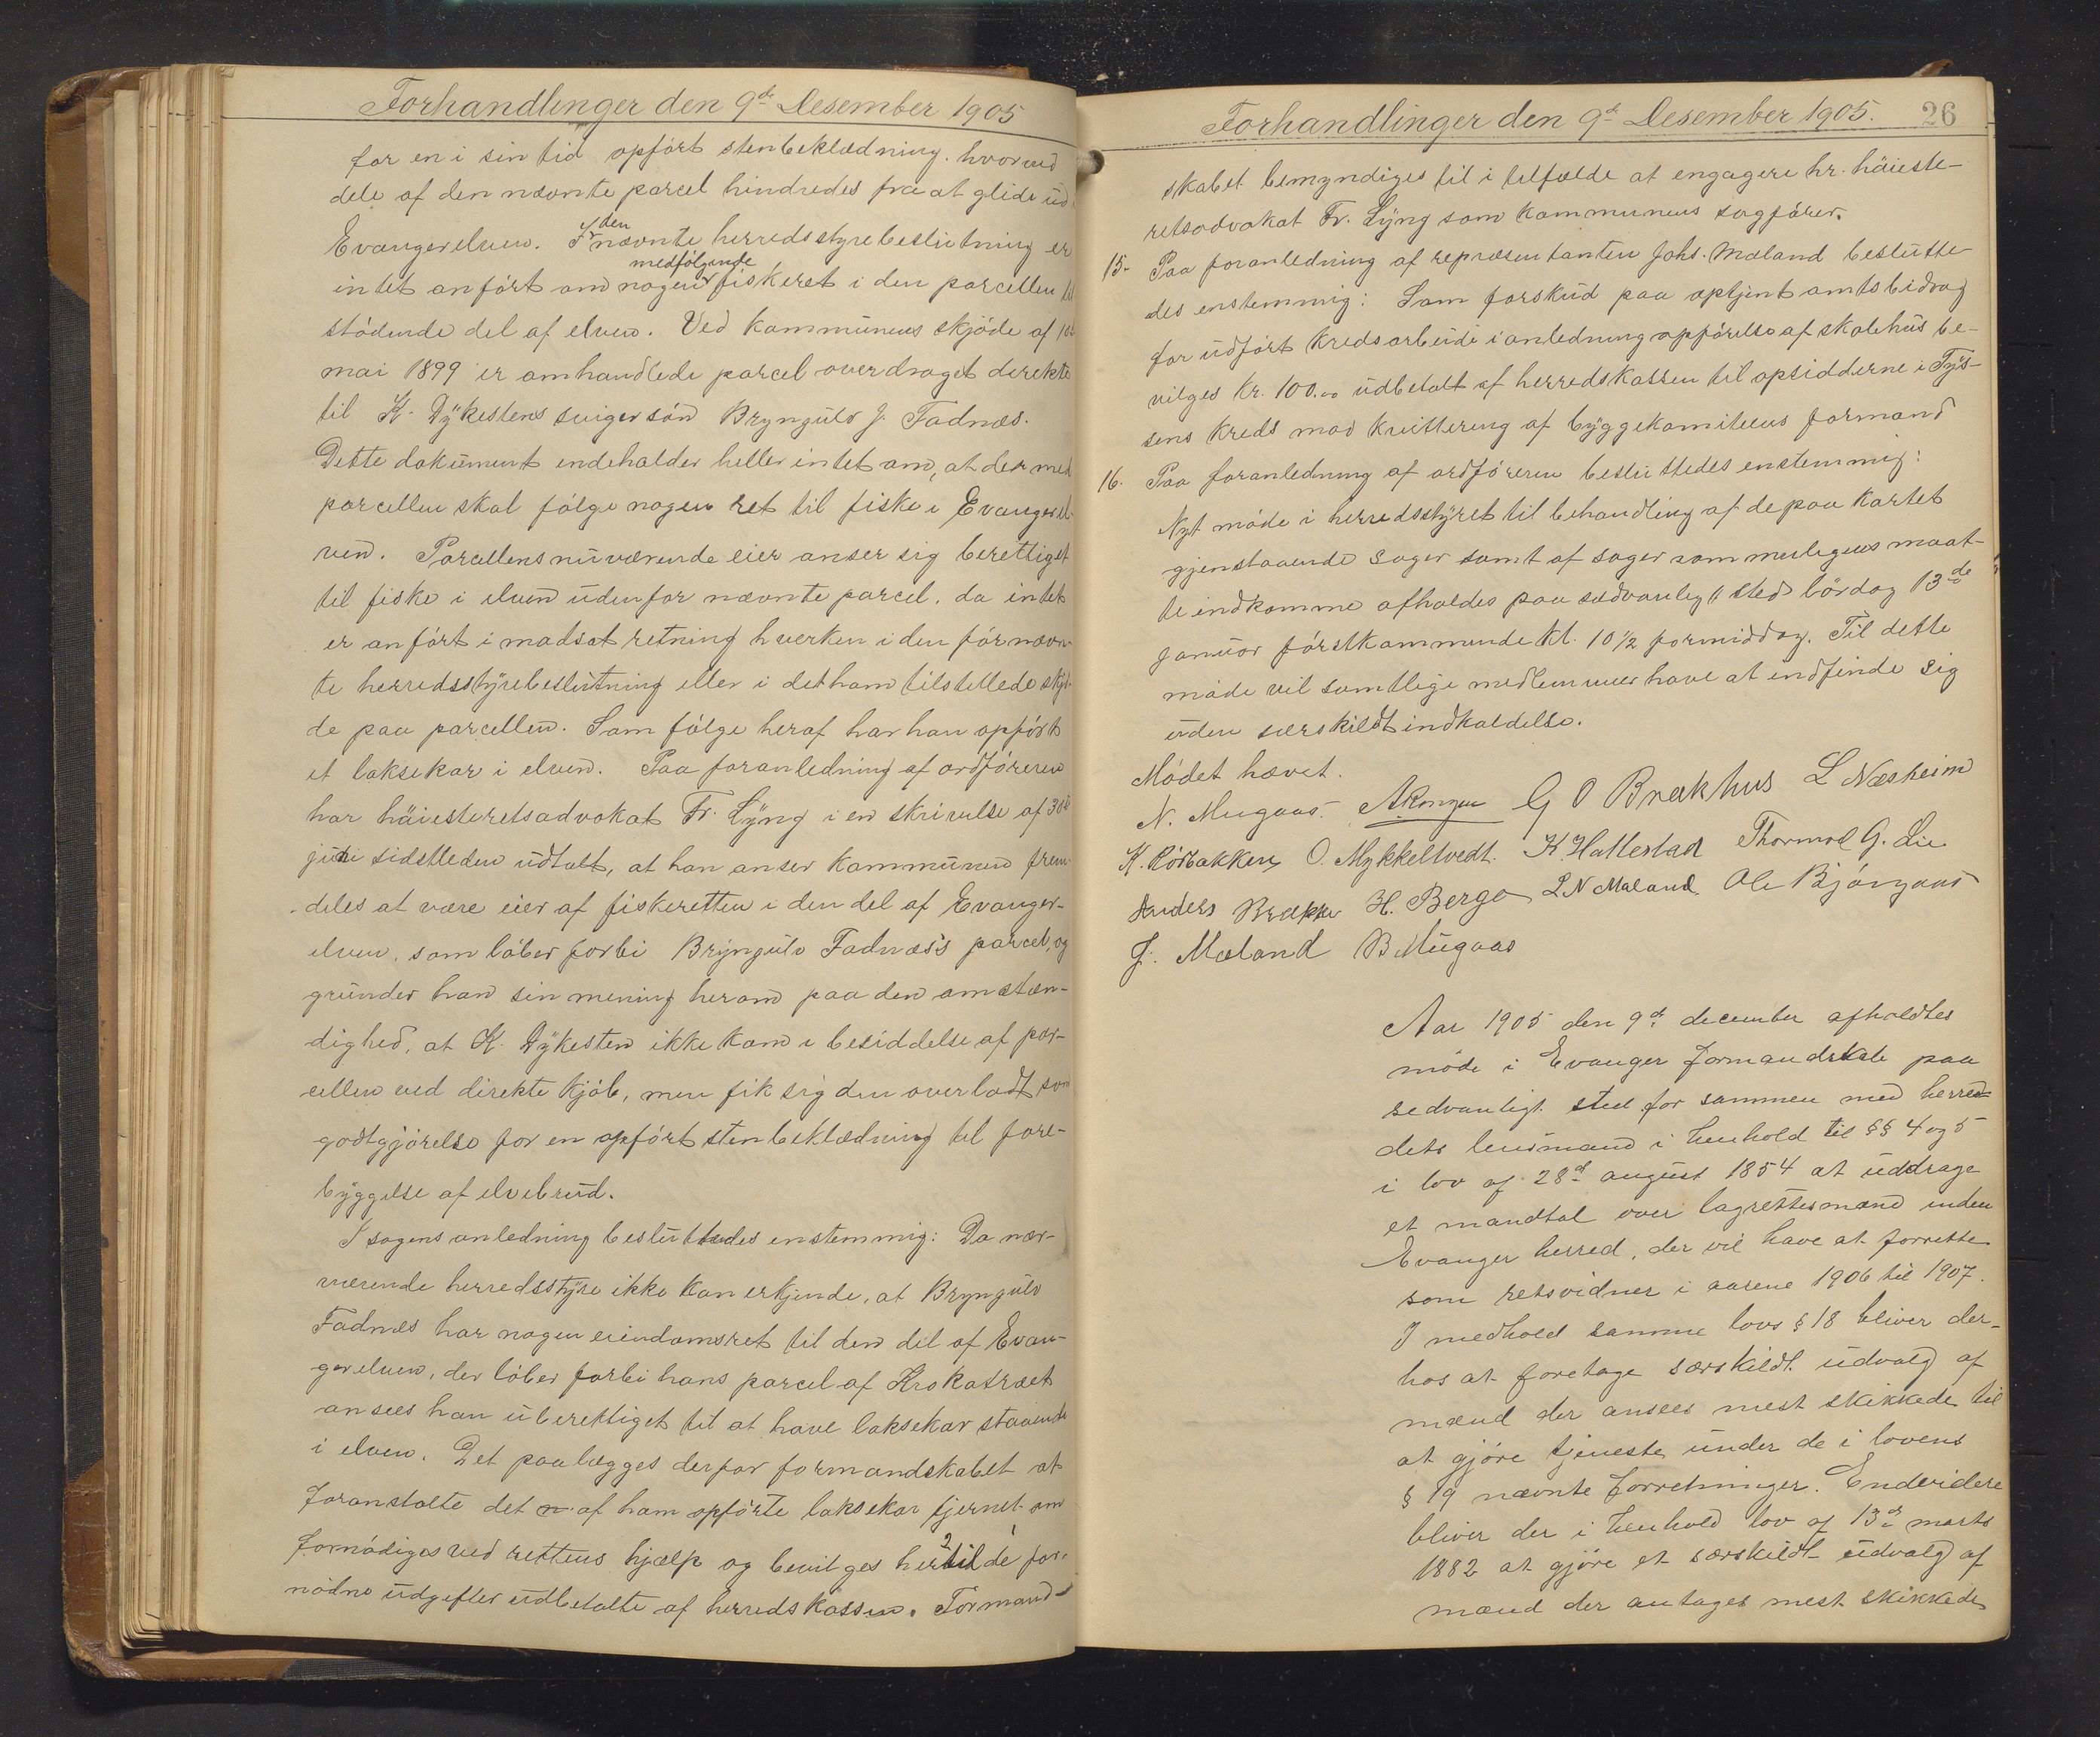 Forhandlinger den 9de Desember 1905
for en i sin tid opført stenbeklædning. hvorved
dele af den nævnte parcel hindredes fra at glide ud i
Evangerelven. I den nævnte herredsstyrebeslutning er
intet anført om nogen medfølgende fiskeret i den parcellen til
stødende del af elven. Ved kommunens skjøde af 10de
mai 1899 er omhandlede parcel overdraget direkte
til K. Dykestens svigersøn Bryngulv J. Fadnæs.
Dette dokument endeholder heller intet om, at der med
parcellen skal følge nogen ret til fiske i Evangerel-
ven. Parcellens nuværende eier anser sig berettiget
til fiske i elven udenfor nævnte parcel, da intet
er anført i modsat retning hverken i den førnævn-
te herredsstyrebeslutning eller i det ham tilstillede skjø-
de paa parcellen. Som følge heraf har han opført
et laksekar i elven. Paa foranledning af ordføreren
har høiesteretsadvokat Fr. Lyng i en skrivelse af 30te
juni sidstleden udtalt, at han anser kommunen frem-
deles at være eier af fiskeretten i den del af Evanger-
elven, som løber forbi Bryngulv Fadnæs's parcel, og
grunder han sin mening herom paa den omstæn-
dighed, at K. Dykesten ikke kom i besiddelse af par-
cellen ved direkte kjøb, men fik sig den overladt som
godtgjørelse for en opført stenbeklædning til fore-
byggelse af elvebrud.
I sagens anledning besluttedes enstemmig: Da nær-
værende herredsstyre ikke kan erkjende, at Bryngulv
Fadnæs har nogen eiendomsret til den del af Evan-
gerelven, der løber forbi hans parcel af Krokatræet
ansees han uberettiget til at have laksekar staaende
i elven. Det paalægges derfor formandskabet at
foranstalte det af ham opførte laksekar fjernet om
fornødiges ved rettens hjælp og bevilges hertil de for-
nødne udgifter udbetalte af herredskassen. Formand-
Forhandlinger den 9de Desember 1905. 26
skabet bemyndiges til i tilfælde at engagere hr. høieste-
retsadvokat Fr. Lyng som kommunens sagfører.
15. Paa foranledning af repræsentanten Johs. Mæland beslutte-
des enstemmig: Som forskud paa optjent amtsbidrag
for udført kredsarbeide i anledning opførelse af skolehus be-
vilges kr. 100.00 udbetalt af herredskassen til opsidderne i Tys-
sens kreds mod kvittering af byggekomiteens formand
16. Paa foranledning af ordføreren besluttedes enstemmig:
Nyt møde i herredsstyret til behandling af de paa kartet
gjenstaaende sager samt af sager som muligens maat-
te indkomme afholdes paa sædvanlig sted lørdag 13de
januar førstkommende kl. 10 1/2 formiddag. Til dette
møde vil samtlige medlemmer have at indfinde sig
uden særskildt indkaldelse.
Mødet hævet.
N. Mugaas. G O Brækhus L Næsheim
K. Rørbakken O. Mykkeltvedt. K. Hallestad Thormod G. Lie
Anders Brække H. Berge L N Mæland Ole Bjørgaas
J. Mæland B Mugaas
Aar 1905 den 9de december afholdtes
møde i Evanger formandskab paa
sedvanligt sted for sammen med herre-
dets lensmand i henhold til §§ 4 og 5
i lov af 28de august 1854 at uddrage
et mandtal over lagrettesmænd inden
Evanger herred, der vil have at forrette
som retsvidner i aarene 1906 til 1907.
I medhold samme lovs § 18 bliver der-
hos at foretage særskildt udvalg af
mænd der ansees mest skikkede til
at gjøre tjeneste under de i lovens
§ 19 nævnte forretninger. Endvidere
bliver der i henhold lov af 13de marts
1882 at gjøre et særskildt udvalg af
mænd der antages mest skikkede